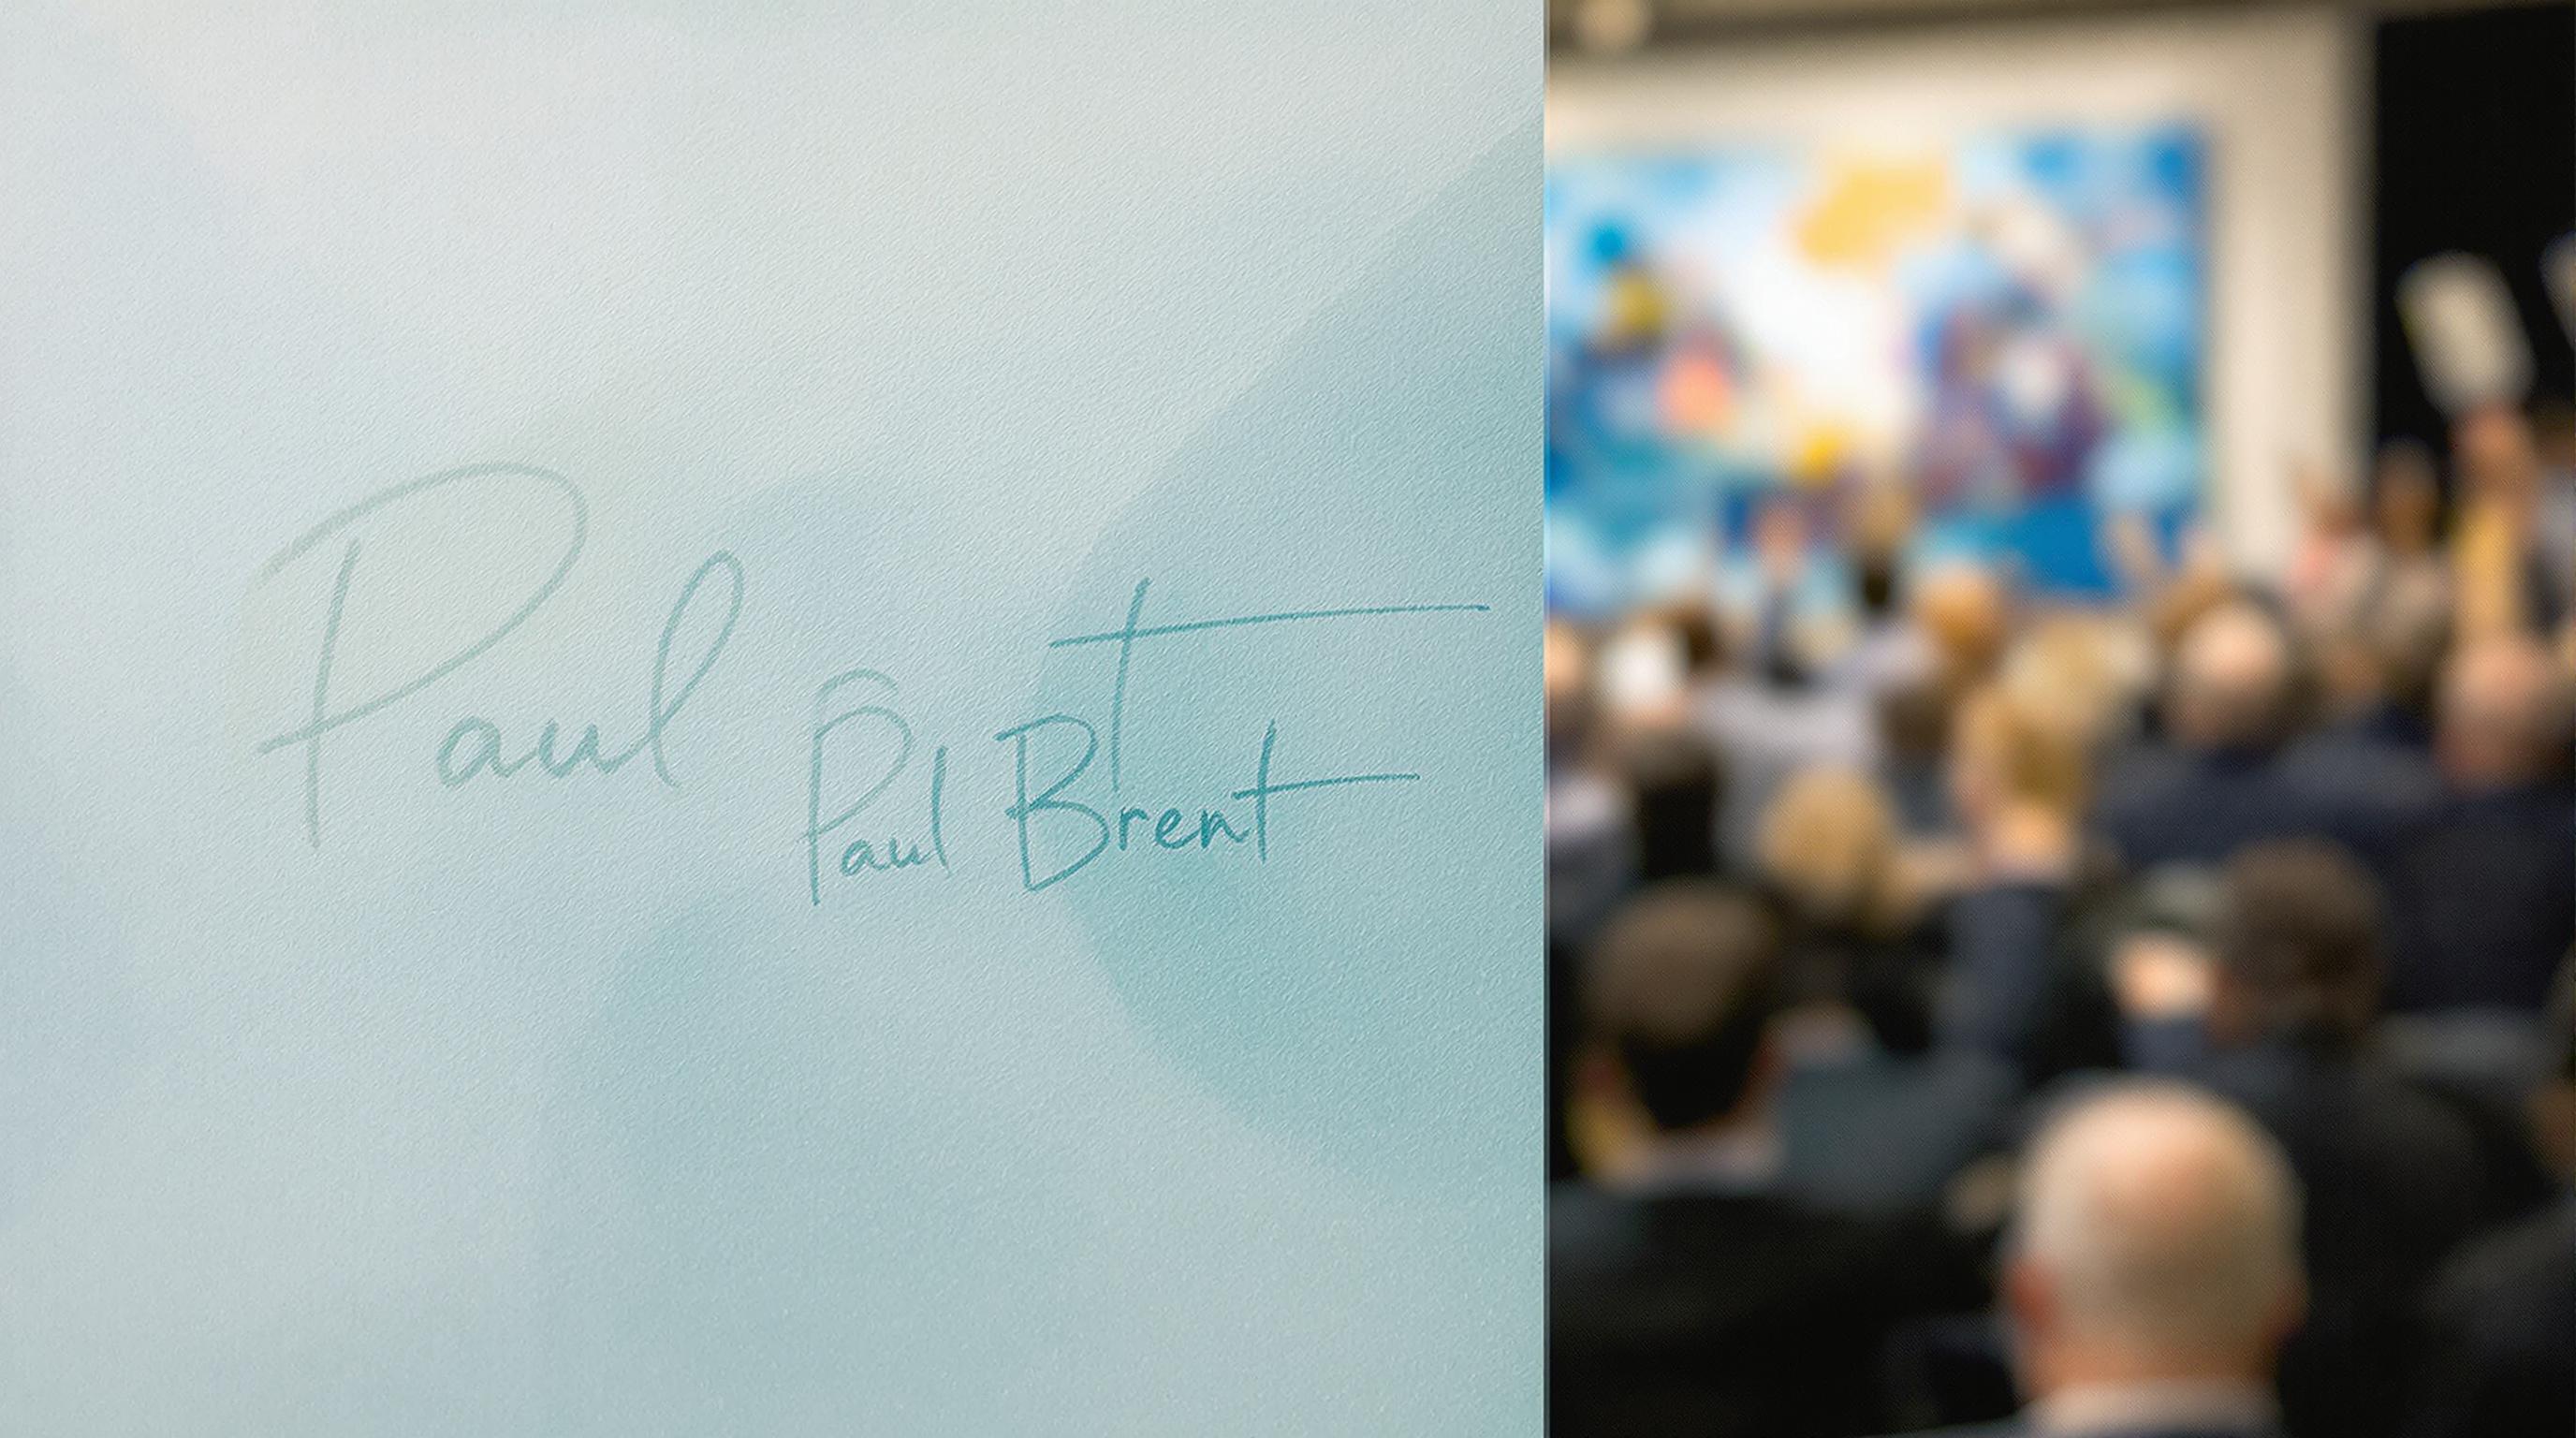 Paul
Paul Brent